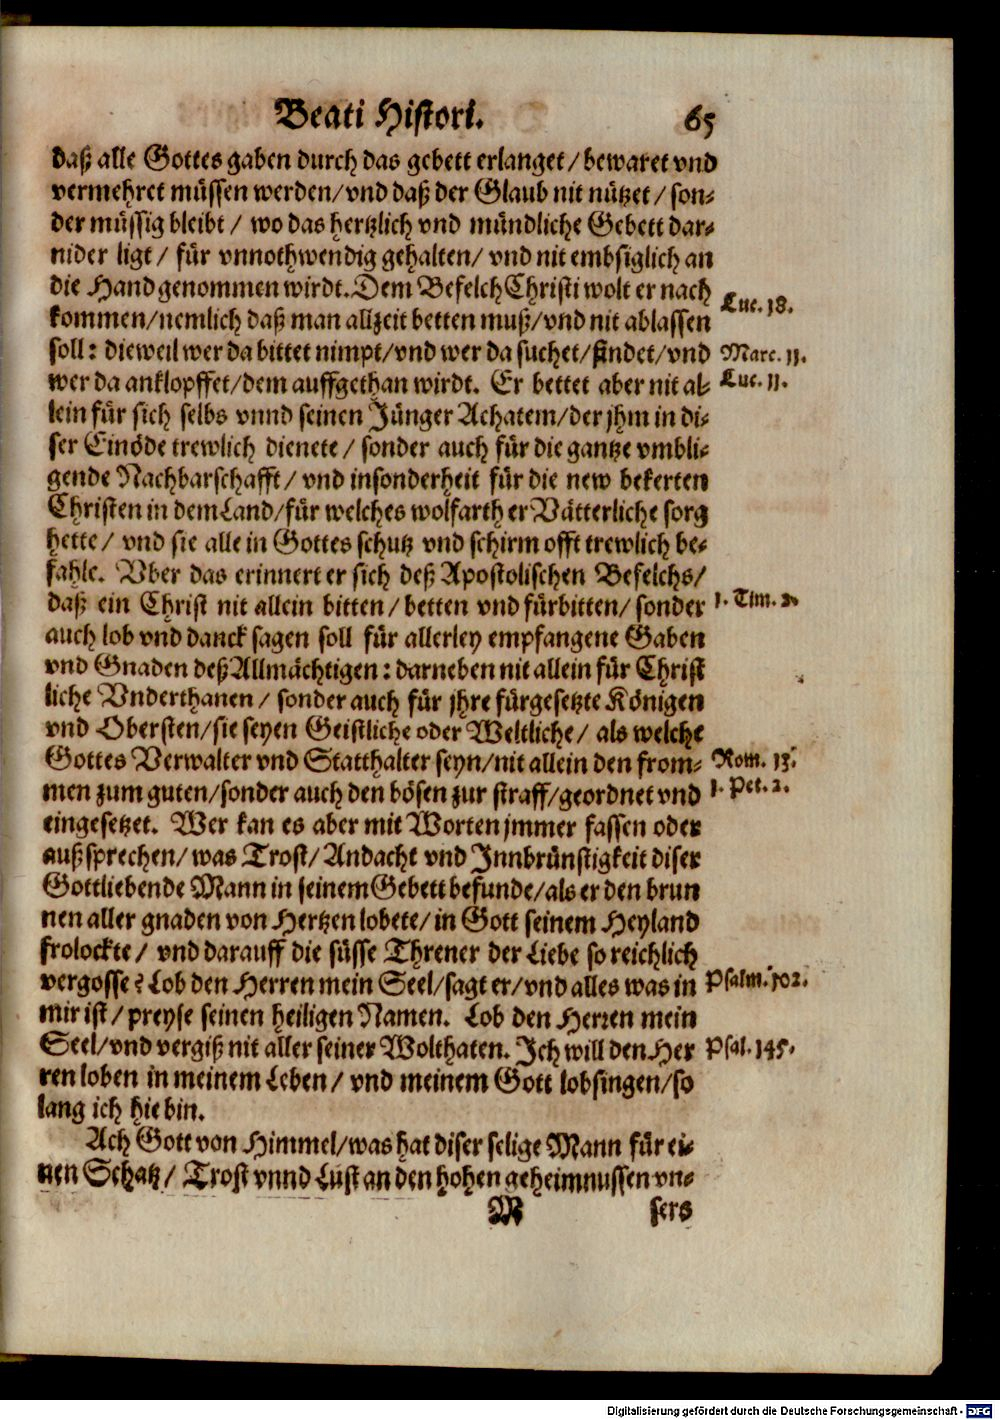 Beati Histori. 65
daß alle Gottes gaben durch das gebett erlanget / bewaret vnd
vermehret müssen werden / vnd daß der Glaub nit nützet / son-
der müssig bleibt / wo das hertzlich vnd mündliche Gebett dar-
nider ligt / für vnnothwendig gehalten / vnd nit embsiglich an
die Hand genommen wirdt. Dem Befelch Christi wolt er nach
Luc. 18.
kommen / nemlich daß man allzeit betten muß / vnd nit ablassen
soll: dieweil wer da bittet nimpt / vnd wer da suchet / findet / vnd
Marc. 11.
wer da anklopffet / dem auffgethan wirdt. Er bettet aber nit al-
Luc. 11.
lein für sich selbs vnnd seinen Jünger Achatem / der jhm in di-
ser Einöde trewlich dienete / sonder auch für die gantze vmbli-
gende Nachbarschafft / vnd insonderheit für die new bekerten
Christen in dem Land / für welches wolfarth er Vätterliche sorg
hette / vnd sie alle in Gottes schutz vnd schirm offt trewlich be-
fahle. Vber das erinnert er sich deß Apostolischen Befelchs /
daß ein Christ nit allein bitten / betten vnd fürbitten / sonder
1. Tim. 2.
auch lob vnd danck sagen soll für allerley empfangene Gaben
vnd Gnaden deß Allmächtigen: darneben nit allein für Christ
liche Vnderthanen / sonder auch für jhre fürgesetzte Königen
vnd Obersten / sie seyen Geistliche oder Weltliche / als welche
Gottes Verwalter vnd Statthalter seyn / nit allein den from-
Rom. 13.
men zum guten / sonder auch den bösen zur straff / geordnet vnd
1. Pet. 2.
eingesetzet. Wer kan es aber mit Worten jmmer fassen oder
außsprechen / was Trost / Andacht vnd Innbrünstigkeit diser
Gottliebende Mann in seinem Gebett befunde / als er den brun
nen aller gnaden von Hertzen lobete / in Gott seinem Heyland
frolockte / vnd darauff die süsse Threner der Liebe so reichlich
vergosse? Lob den Herren mein Seel / sagt er / vnd alles was in
Psalm. 102.
mir ist / preyse seinen heiligen Namen. Lob den Herren mein
Seel / vnd vergiß nit aller seiner Wolthaten. Ich will den Her
Psal. 145.
ren loben in meinem Leben / vnd meinem Gott lobsingen / so
lang ich hie bin.
Ach Gott von Himmel / was hat diser selige Mann für ei-
nen Schatz / Trost vnnd Lust an den hohen geheimnussen vn-
M sers
Digitalisierung gefördert durch die Deutsche Forschungsgemeinschaft - DFG